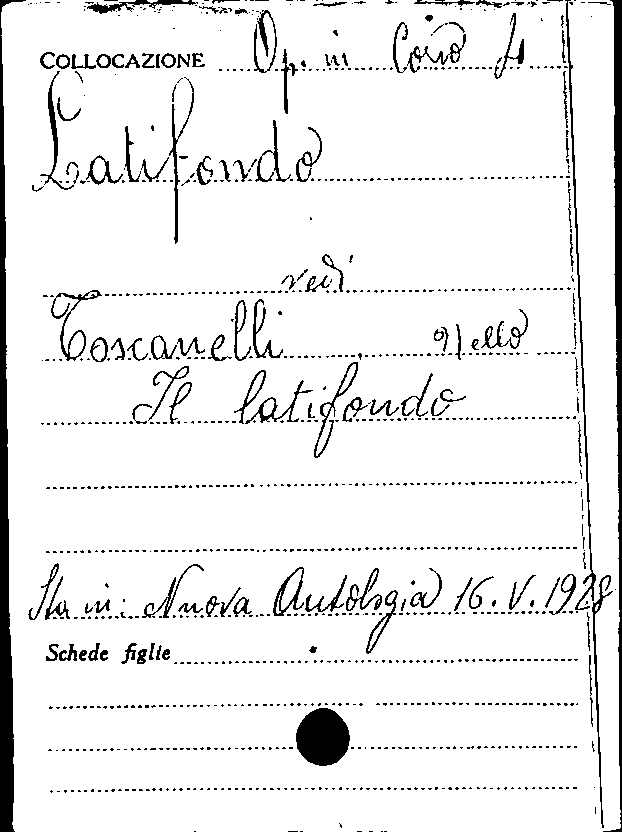 COLLOCAZIONE Op. in Corso
Latifondo
vedi
Toscanelli Nello
Il latifondo
Sta in: Nuova Antologia 16.V.1928
Schede figlie